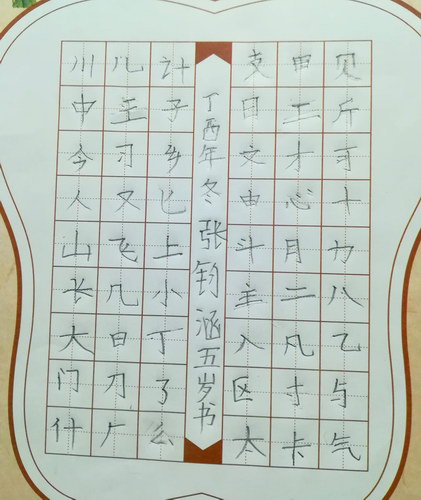 贝斤可十力八乙与气
甲工才心月二凡寸卡
支日文由斗主入区太
丁酉年冬张钧涵五岁书
计子乡匕上小丁了么
儿王习又飞几曰刀广
川中今人山长大门什